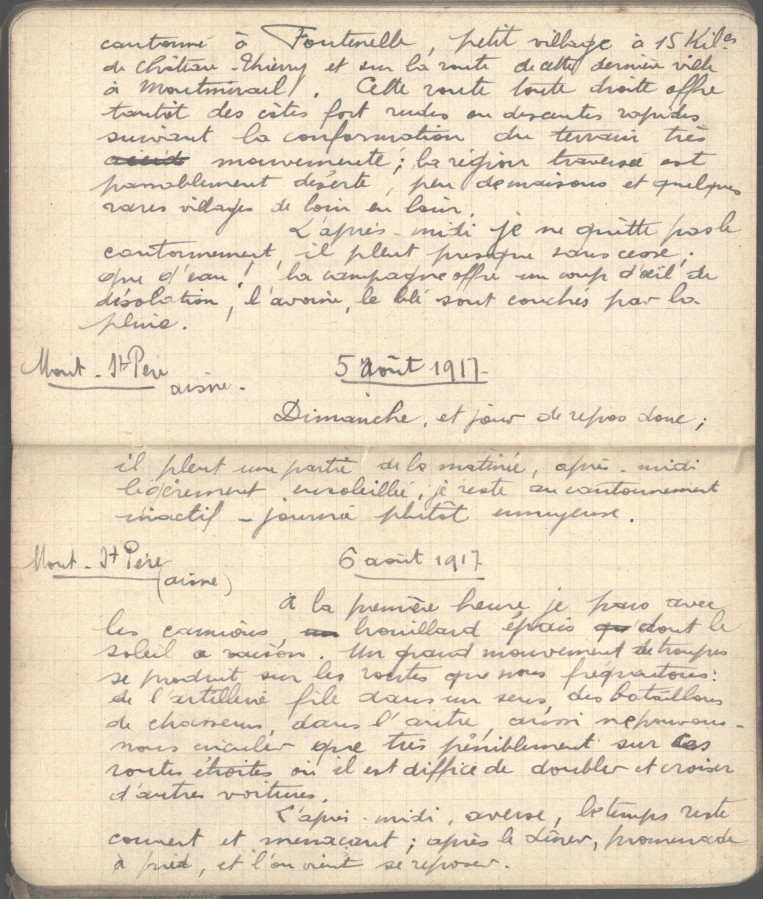 cantonné à Fontenelle, petit village à 15 Kil.es
de Château-Thierry et sur la route de cette dernière ville
à Montmirail. Cette route toute droite offre
tantôt des côtes fort rudes ou descentes rapides
suivant la conformation du terrain très
mouvementé; la région traversée est
passablement déserte, peu de maisons et quelques
rares villages de loin en loin.
L'après-midi je ne quitte pas le
cantonnement, il pleut presque sans cesse;
que d'eau! la campagne offre un coup d'œil de
désolation, l'avoine, le blé sont couchés par la
pluie.
Mont-St Père
aisne.
5 août 1917
Dimanche, et jour de repos donc;
il pleut une partie de la matinée, après-midi
légèrement ensoleillée, je reste au cantonnement
inactif - journée plutôt ennuyeuse.
Mont-St Père
(aisne)
6 août 1917
A la première heure je pars avec
les camions, brouillard épais dont le
soleil a raison. Un grand mouvement de troupes
se produit sur les routes que nous fréquentons:
de l'artillerie file dans un sens, des bataillons
de chasseurs dans l'autre, aussi ne pouvons-
nous circuler que très péniblement sur ces
routes étroites où il est diffice de doubler et croiser
d'autres voitures.
L'après-midi, averse, le temps reste
couvert et menaçant; après le dîner, promenade
à pied, et l'on vient se reposer.